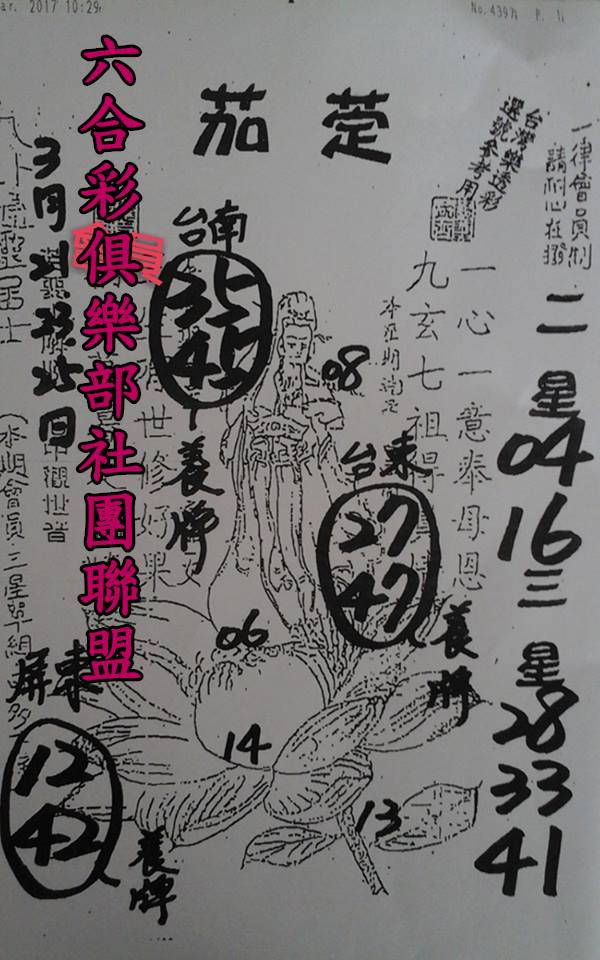 2017 10:29
No. 4397 P. 1
六合彩俱樂部社團聯盟
茄萣
台灣樂透彩
選號參考用
一律會員制
請耐心在撥
二星
04
16
三星
28
33
41
一心一意奉母恩
九玄七祖得
台南
35
45
養牌
08
台東
27
47
養牌
06
14
13
屏東
12
42
養牌
3月21.23.25日
世修好果
觀世音
(本期會員三星單組